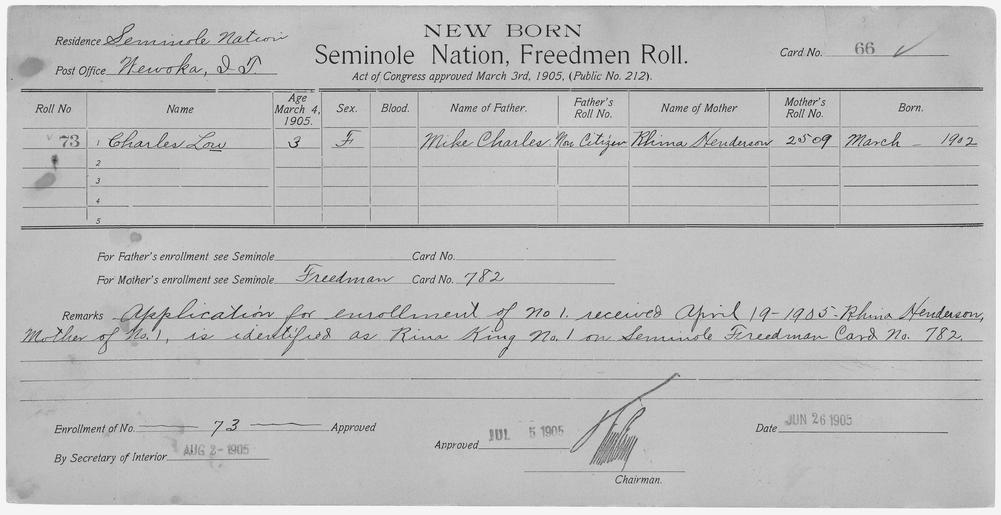 NEW BORN
Residence Seminole Nation
Seminole Nation, Freedmen Roll.
Card No. 66 ✓
Post Office Wewoka, I. T.
Act of Congress approved March 3rd, 1905, (Public No. 212).
Roll No Name Age March 4, 1905. Sex. Blood. Name of Father. Father's Roll No. Name of Mother Mother's Roll No. Born.
73 1 Charles Low 3 F Mike Charles Non Citizen Rhina Henderson 2509 March – 1902
2
3
4
5
For Father's enrollment see Seminole Card No.
For Mother's enrollment see Seminole Freedman Card No. 782
Remarks Application for enrollment of No 1. received April 19-1905- Rhina Henderson,
Mother of No. 1, is identified as Rina King No. 1 on Seminole Freedman Card No. 782.
Enrollment of No. 73 Approved
By Secretary of Interior AUG 2- 1905
Approved JUL 5 1905
Chairman.
Date JUN 26 1905